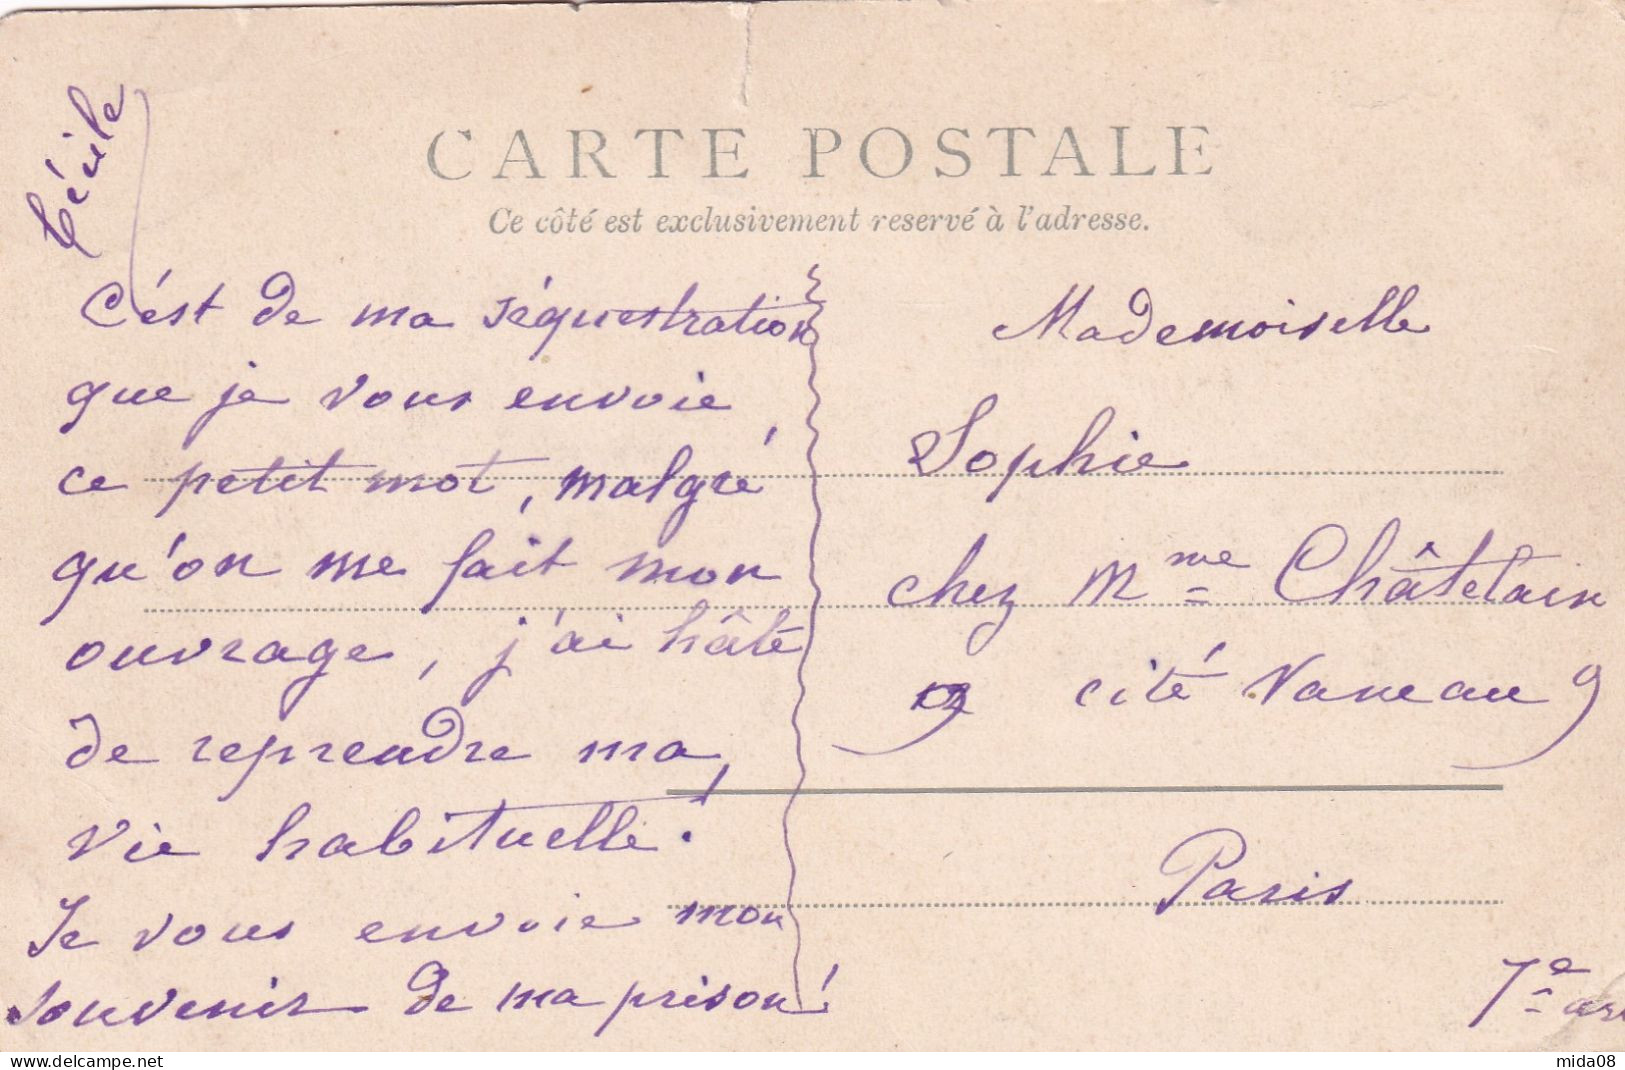 CARTE POSTALE
Ce côté est exclusivement reservé à l'adresse.
Cécile
C'est de ma séquestration
que je vous envoie
ce petit mot, malgré
qu'on me fait mon
ouvrage, j'ai hâte
de reprendre ma
vie habituelle!
Je vous envoie mon
souvenir de ma prison!
Mademoiselle
Sophie
chez Mme Châtelain
cité Vaneau 9
Paris
7e arr
mida08